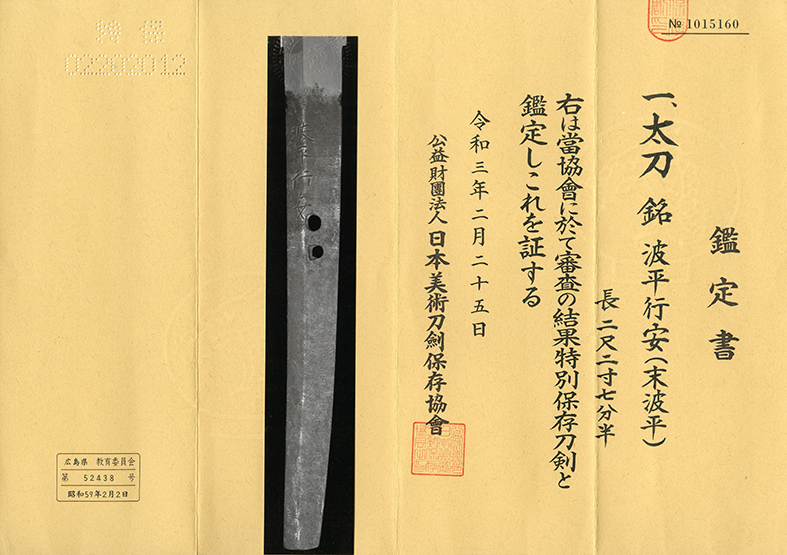 № 1015160
鑑定書
一、太刀 銘 波平行安(末波平)
長二尺二寸七分半
右は當協會に於て審査の結果特別保存刀剣と
鑑定しこれを証する
令和三年二月二十五日
公益財團法人 日本美術刀劍保存協會
波平行安
特保
02202012
広島県 教育委員会
第 52438 号
昭和59年2月2日